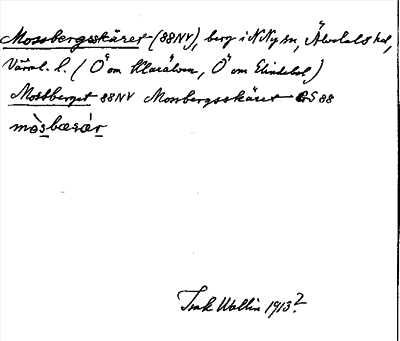 Mossbergsskäret (88NV), berg i N Ny sn, Älvdals hd,
Värml. l. (Ö om Klarälven, Ö om Elindebol)
Mossberget 88NV Mossbergsskäret GS 88
mòsbæsár
Isak Wallin 1913?